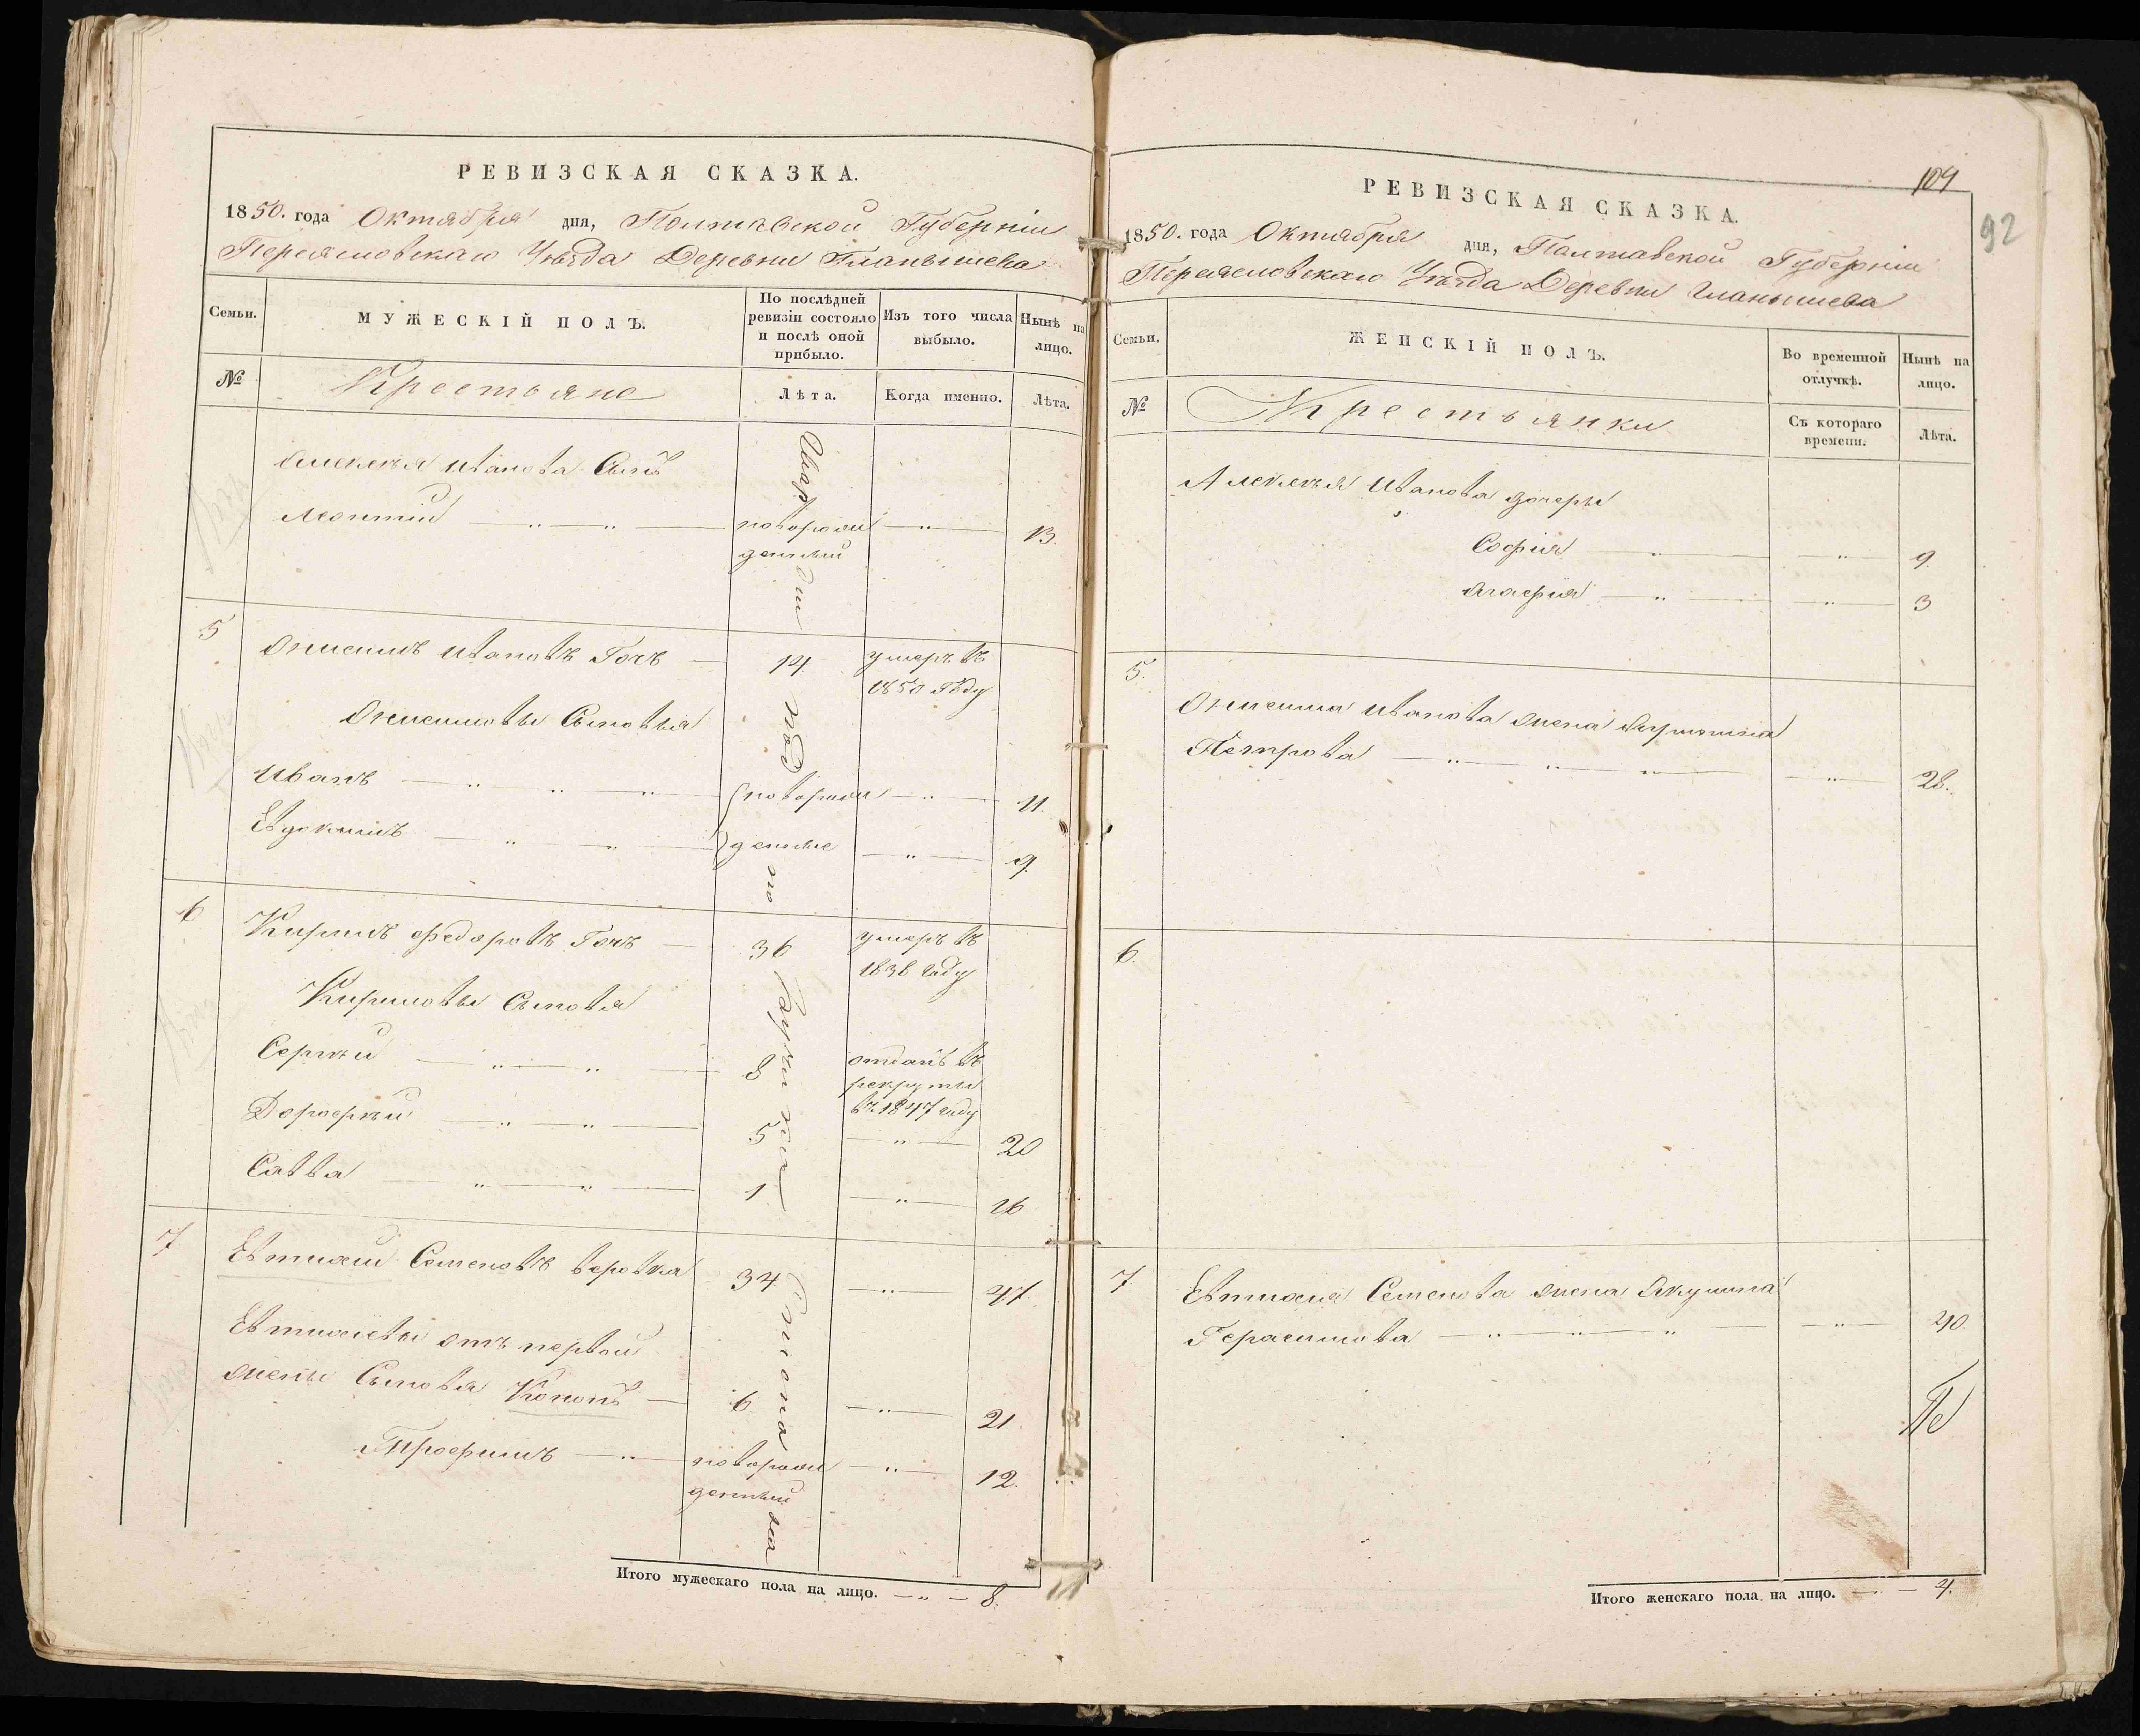 РЕВИЗСКАЯ СКАЗКА.
1850. года Октября дня, Полтавской Губерніи
Переясловскаго Уѣзда Деревни Гланышева
Семьи.
МУЖЕСКІЙ ПОЛЪ.
По послѣдней ревизіи состояло и послѣ оной прибыло.
Изъ того числа выбыло.
Нынѣ на лицо.
№
Крестьяне
Лѣта.
Когда именно.
Лѣта.
Алексѣя Иванова Сынъ
Леонтій — „ — „ — новорож — „ — 13.
денный
5 Онисимъ Ивановъ Гочъ — 14. умеръ въ
1850 году
Онисимовы Сыновья
Иванъ — „ — „ — „ — новорож — „ — 11.
Евдокимъ — „ — „ — денные — „ — 9.
6 Кирилъ Федоровъ Гочъ — 36 умеръ въ
1838 году
Кириловы Сыновя
Сергѣй — „ — „ — 8 отданъ въ
рекруты
въ 1847 году
Дорофѣй — „ — „ — 5 — „ — 20
Савва — „ — „ — 1 — „ — 16
7 Евтихій Семеновъ Веровка 34 — „ — 47
Евтихіевы отъ первой
жены Сыновя Кононъ — 6 — „ — 21.
Трофимъ — „ — новорож — „ — 12.
денный
Итого мужескаго пола на лицо. — „ — 8.
109
92
РЕВИЗСКАЯ СКАЗКА.
1850. года Октября дня, Полтавской Губерніи
Переясловскаго Уѣзда Деревни Гланышева
Семьи.
ЖЕНСКІЙ ПОЛЪ.
Во временной отлучкѣ.
Нынѣ на лицо.
№
Крестьянки
Съ котораго времени.
Лѣта.
Алексѣя Иванова дочеры
Софія — „ — „ — 9.
Агафія — „ — „ — 3
5. Онисима Иванова жена
Петрова — „ — „ — „ — „ — 28.
6.
7. Евтихія Семенова жена Акулина
Герасимова — „ — „ — „ — „ — 40
Итого женскаго пола на лицо. — „ — 4.